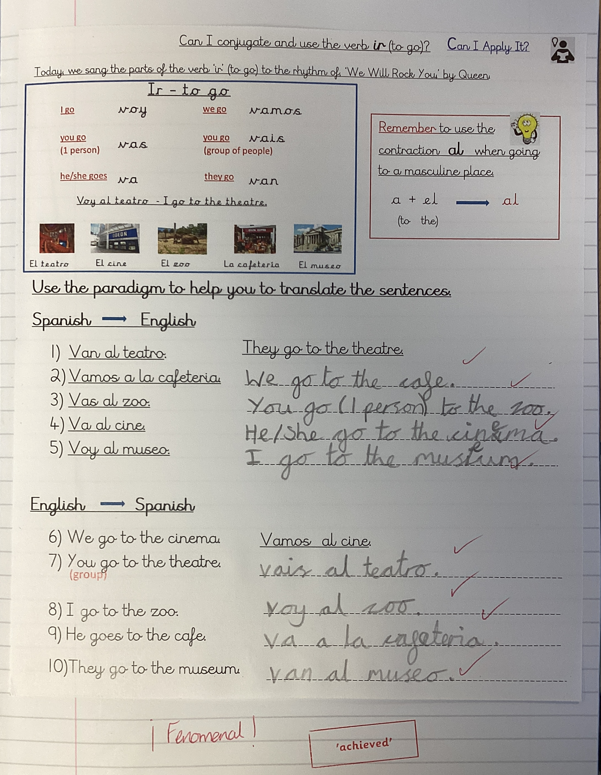 Can I conjugate and use the verb ir (to go)? Can I Apply It?
Today, we sang the parts of the verb 'ir' (to go) to the rhythm of 'We Will Rock You' by Queen.
Ir - to go
I go voy we go vamos
you go (1 person) vas you go (group of people) vais
he/she goes va they go van
Voy al teatro - I go to the theatre.
El teatro El cine El zoo La cafeteria El museo
Remember to use the
contraction al when going
to a masculine place.
a + el → al
(to the)
Use the paradigm to help you to translate the sentences.
Spanish → English
1) Van al teatro. They go to the theatre.
2) Vamos a la cafeteria. We go to the cafe.
3) Vas al zoo. You go (1 person) to the zoo.
4) Va al cine. He/She go to the cinema.
5) Voy al museo. I go to the museum.
English → Spanish
6) We go to the cinema. Vamos al cine.
7) You go to the theatre. vais al teatro.
(group)
8) I go to the zoo. voy al zoo.
9) He goes to the cafe. va a la cafeteria.
10) They go to the museum. van al museo.
¡Fenomenal!
'achieved'